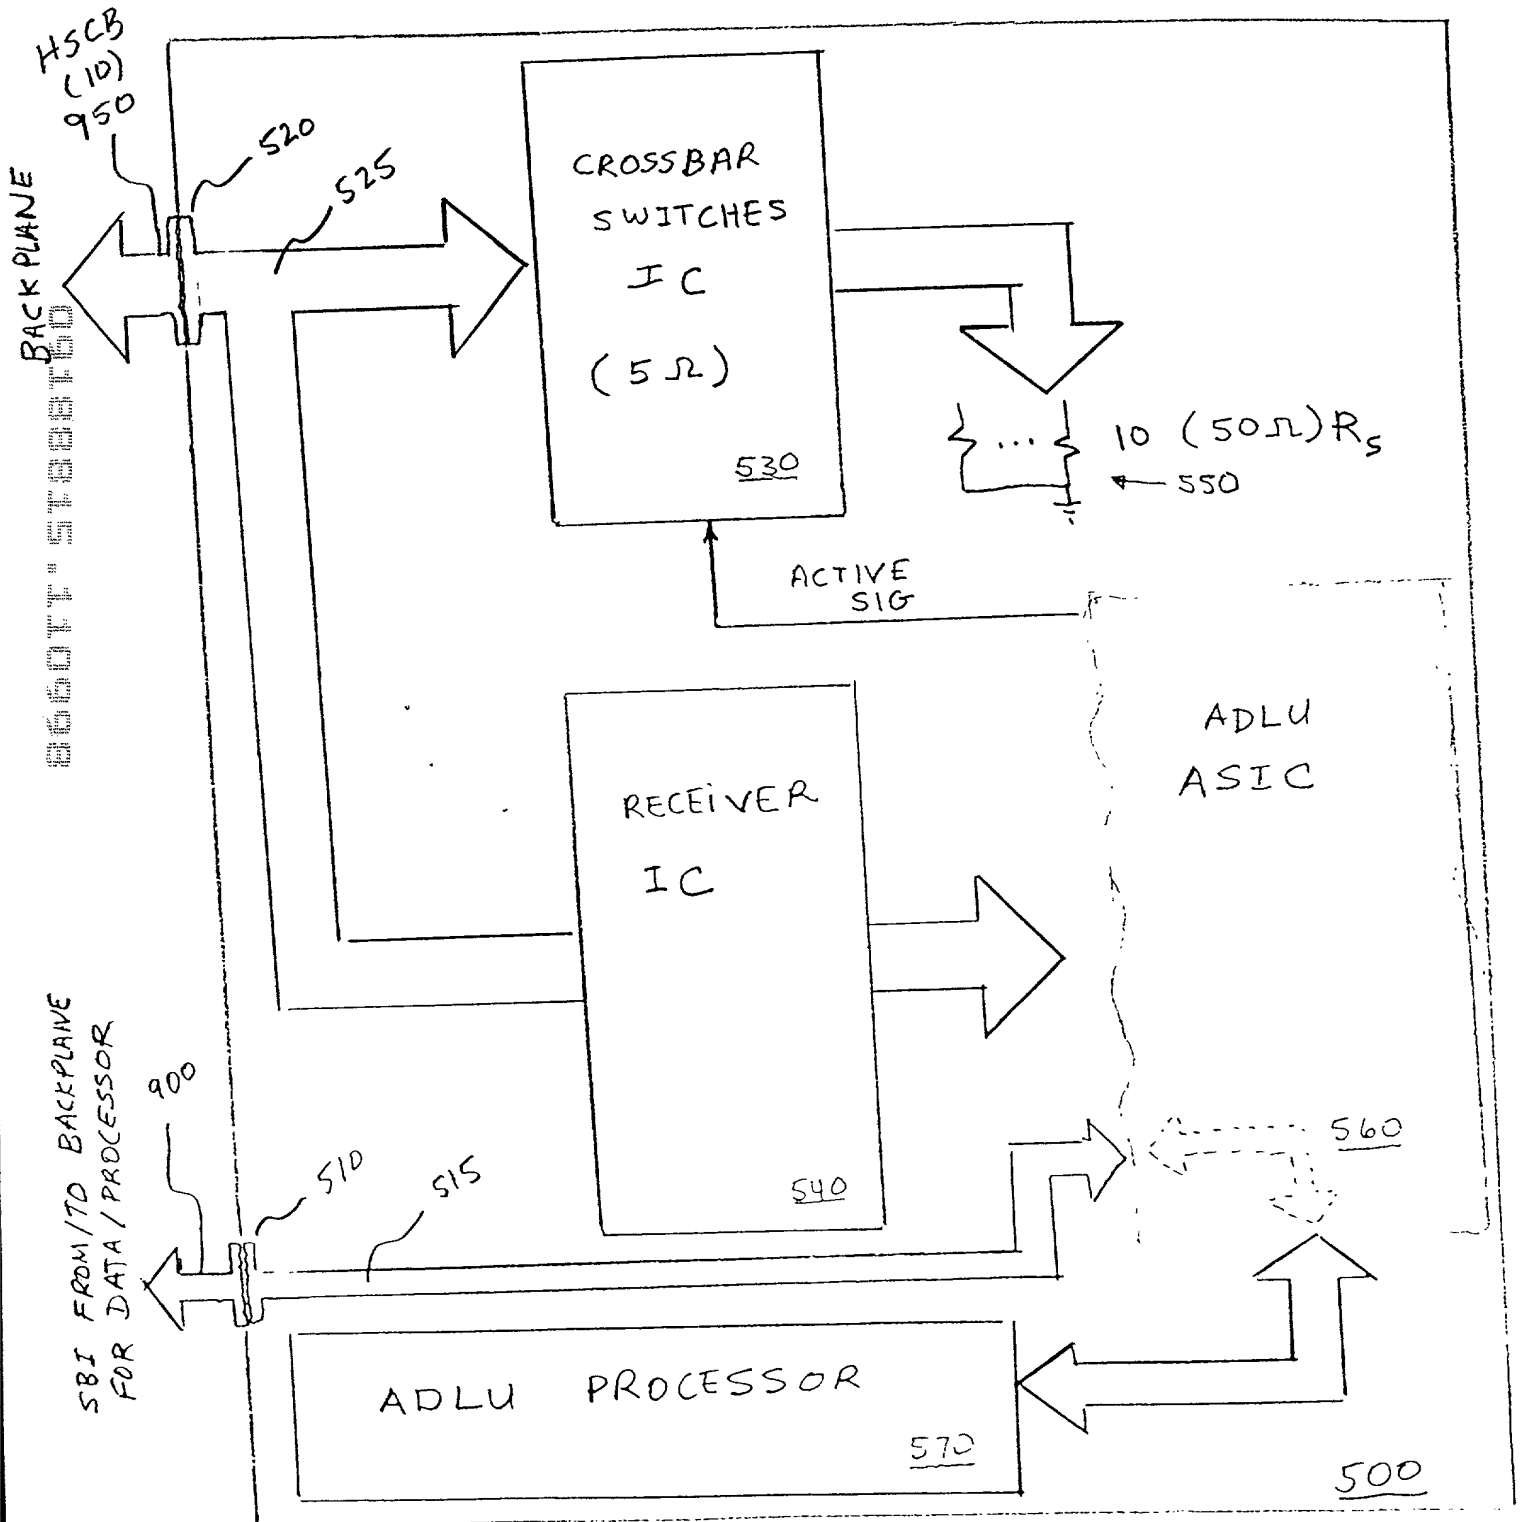 HSCB
(10)
950
520
525
BACKPLANE
CROSSBAR
SWITCHES
IC
(5Ω)
530
10 (50Ω)Rs
550
...
ACTIVE
SIG
ADLU
ASIC
RECEiVER
IC
540
560
SBI FROM/TO BACKPLANE
FOR DATA/PROCESSOR
900
510
515
ADLU PROCESSOR
570
500